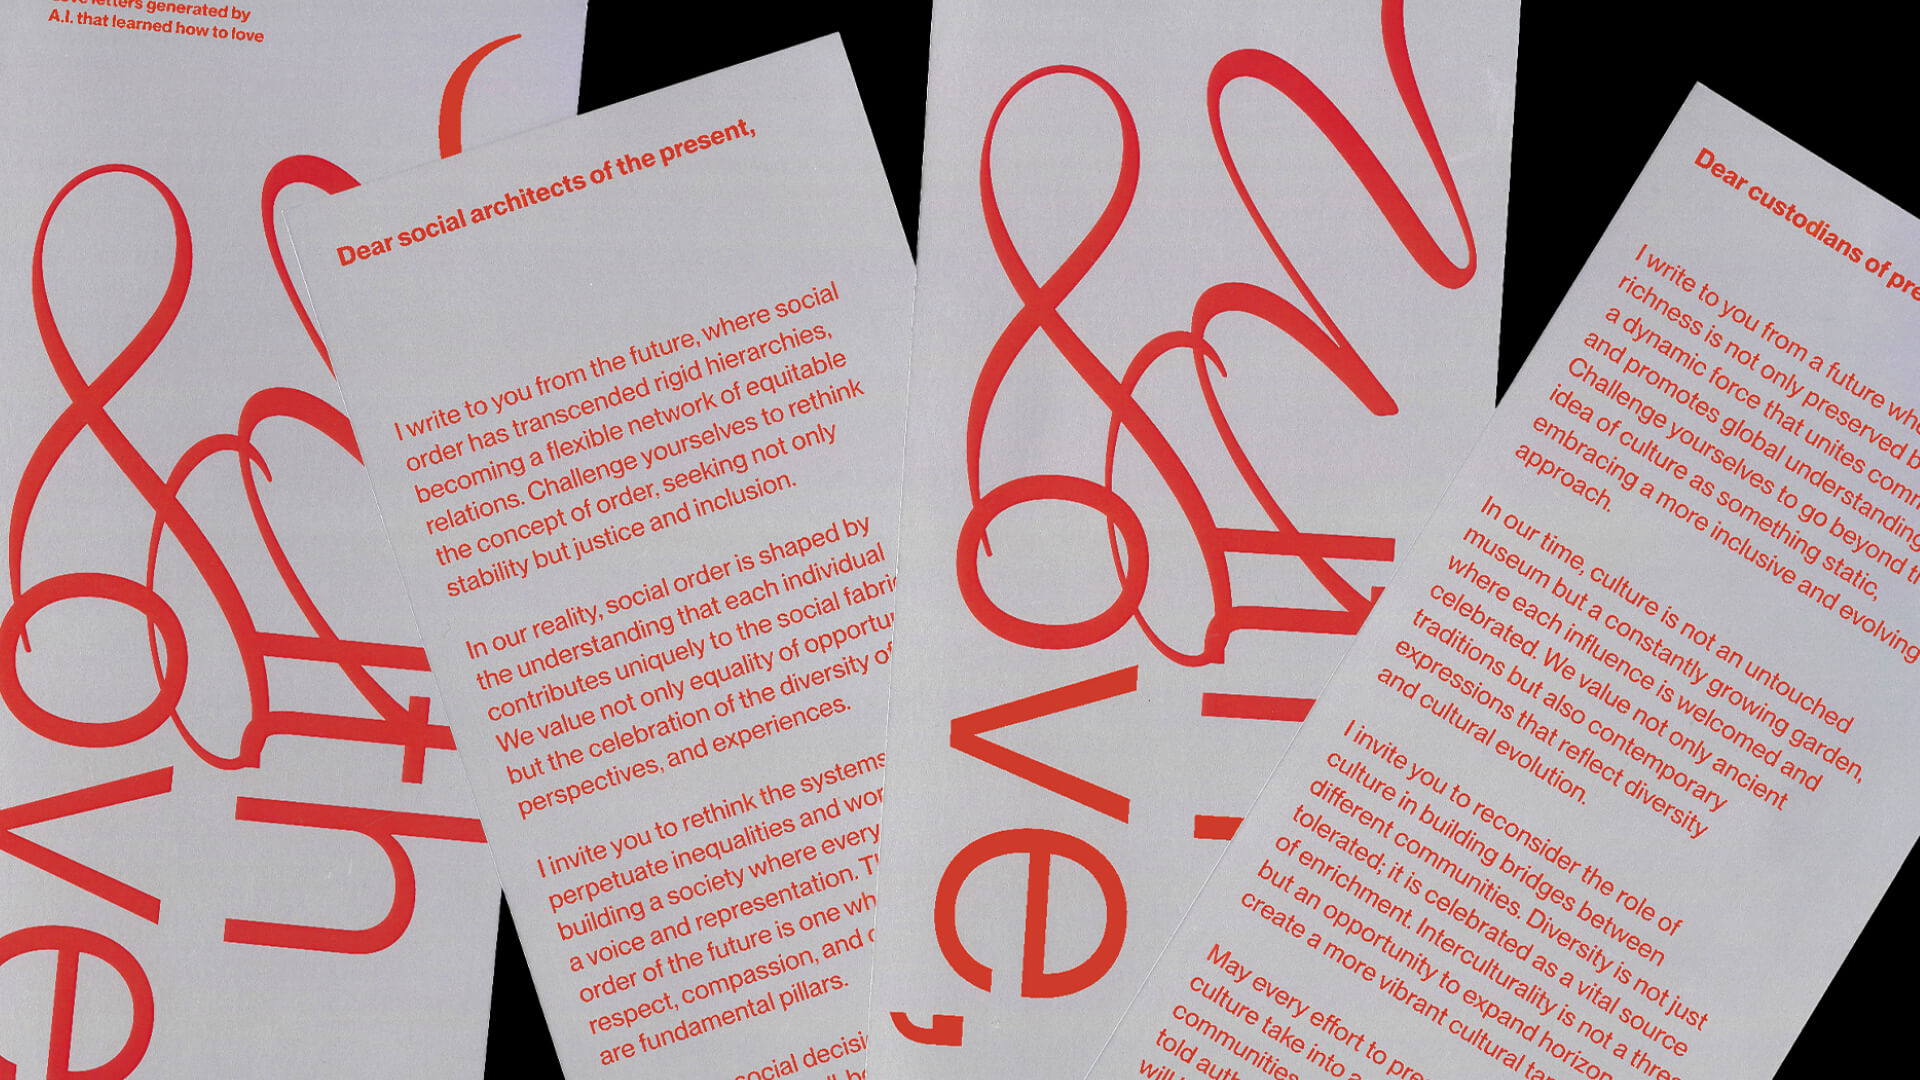 Love letters generated by
A.I. that learned how to love
With
Love
Dear social architects of the present,
I write to you from the future, where social
order has transcended rigid hierarchies,
becoming a flexible network of equitable
relations. Challenge yourselves to rethink
the concept of order, seeking not only
stability but justice and inclusion.
In our reality, social order is shaped by
the understanding that each individual
contributes uniquely to the social fabric
We value not only equality of
but the celebration of the diversity of
perspectives, and experiences.
I invite you to rethink the systems
perpetuate inequalities and
building a society where every
a voice and representation.
order of the future is one
respect, compassion, and
are fundamental pillars.
social
With
Love,
Dear custodians of
I write to you from a future
richness is not only preserved
a dynamic force that unites
and promotes global understanding
Challenge yourselves to go beyond
idea of culture as something static,
embracing a more inclusive and evolving
approach.
In our time, culture is not an untouched
museum but a constantly growing garden,
where each influence is welcomed and
celebrated. We value not only ancient
traditions but also contemporary
expressions that reflect diversity
and cultural evolution.
I invite you to reconsider the role of
culture in building bridges between
different communities. Diversity is not just
tolerated; it is celebrated as a vital source
of enrichment. Interculturality is not a
but an opportunity to expand
create a more vibrant cultural
May every effort to
culture take into
communities
told
will